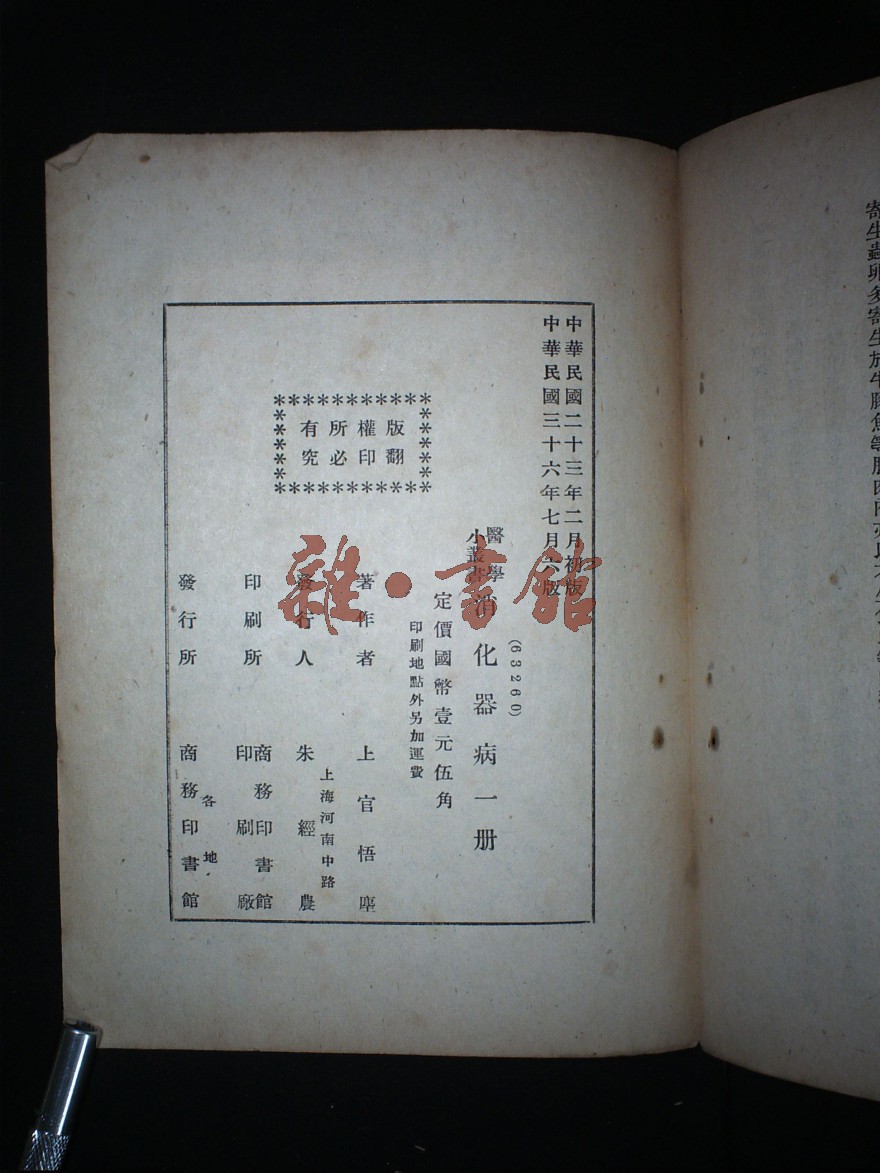 中華民國二十三年二月初版
中華民國三十六年七月六版
(63260)
醫學小叢書
消化器病一册
定價國幣壹元伍角
印刷地點外另加運費
版權所有
翻印必究
著作者 上官悟塵
上海河南中路
發行人 朱經農
印刷所 商務印書館印刷廠
各地
發行所 商務印書館
雜·書館